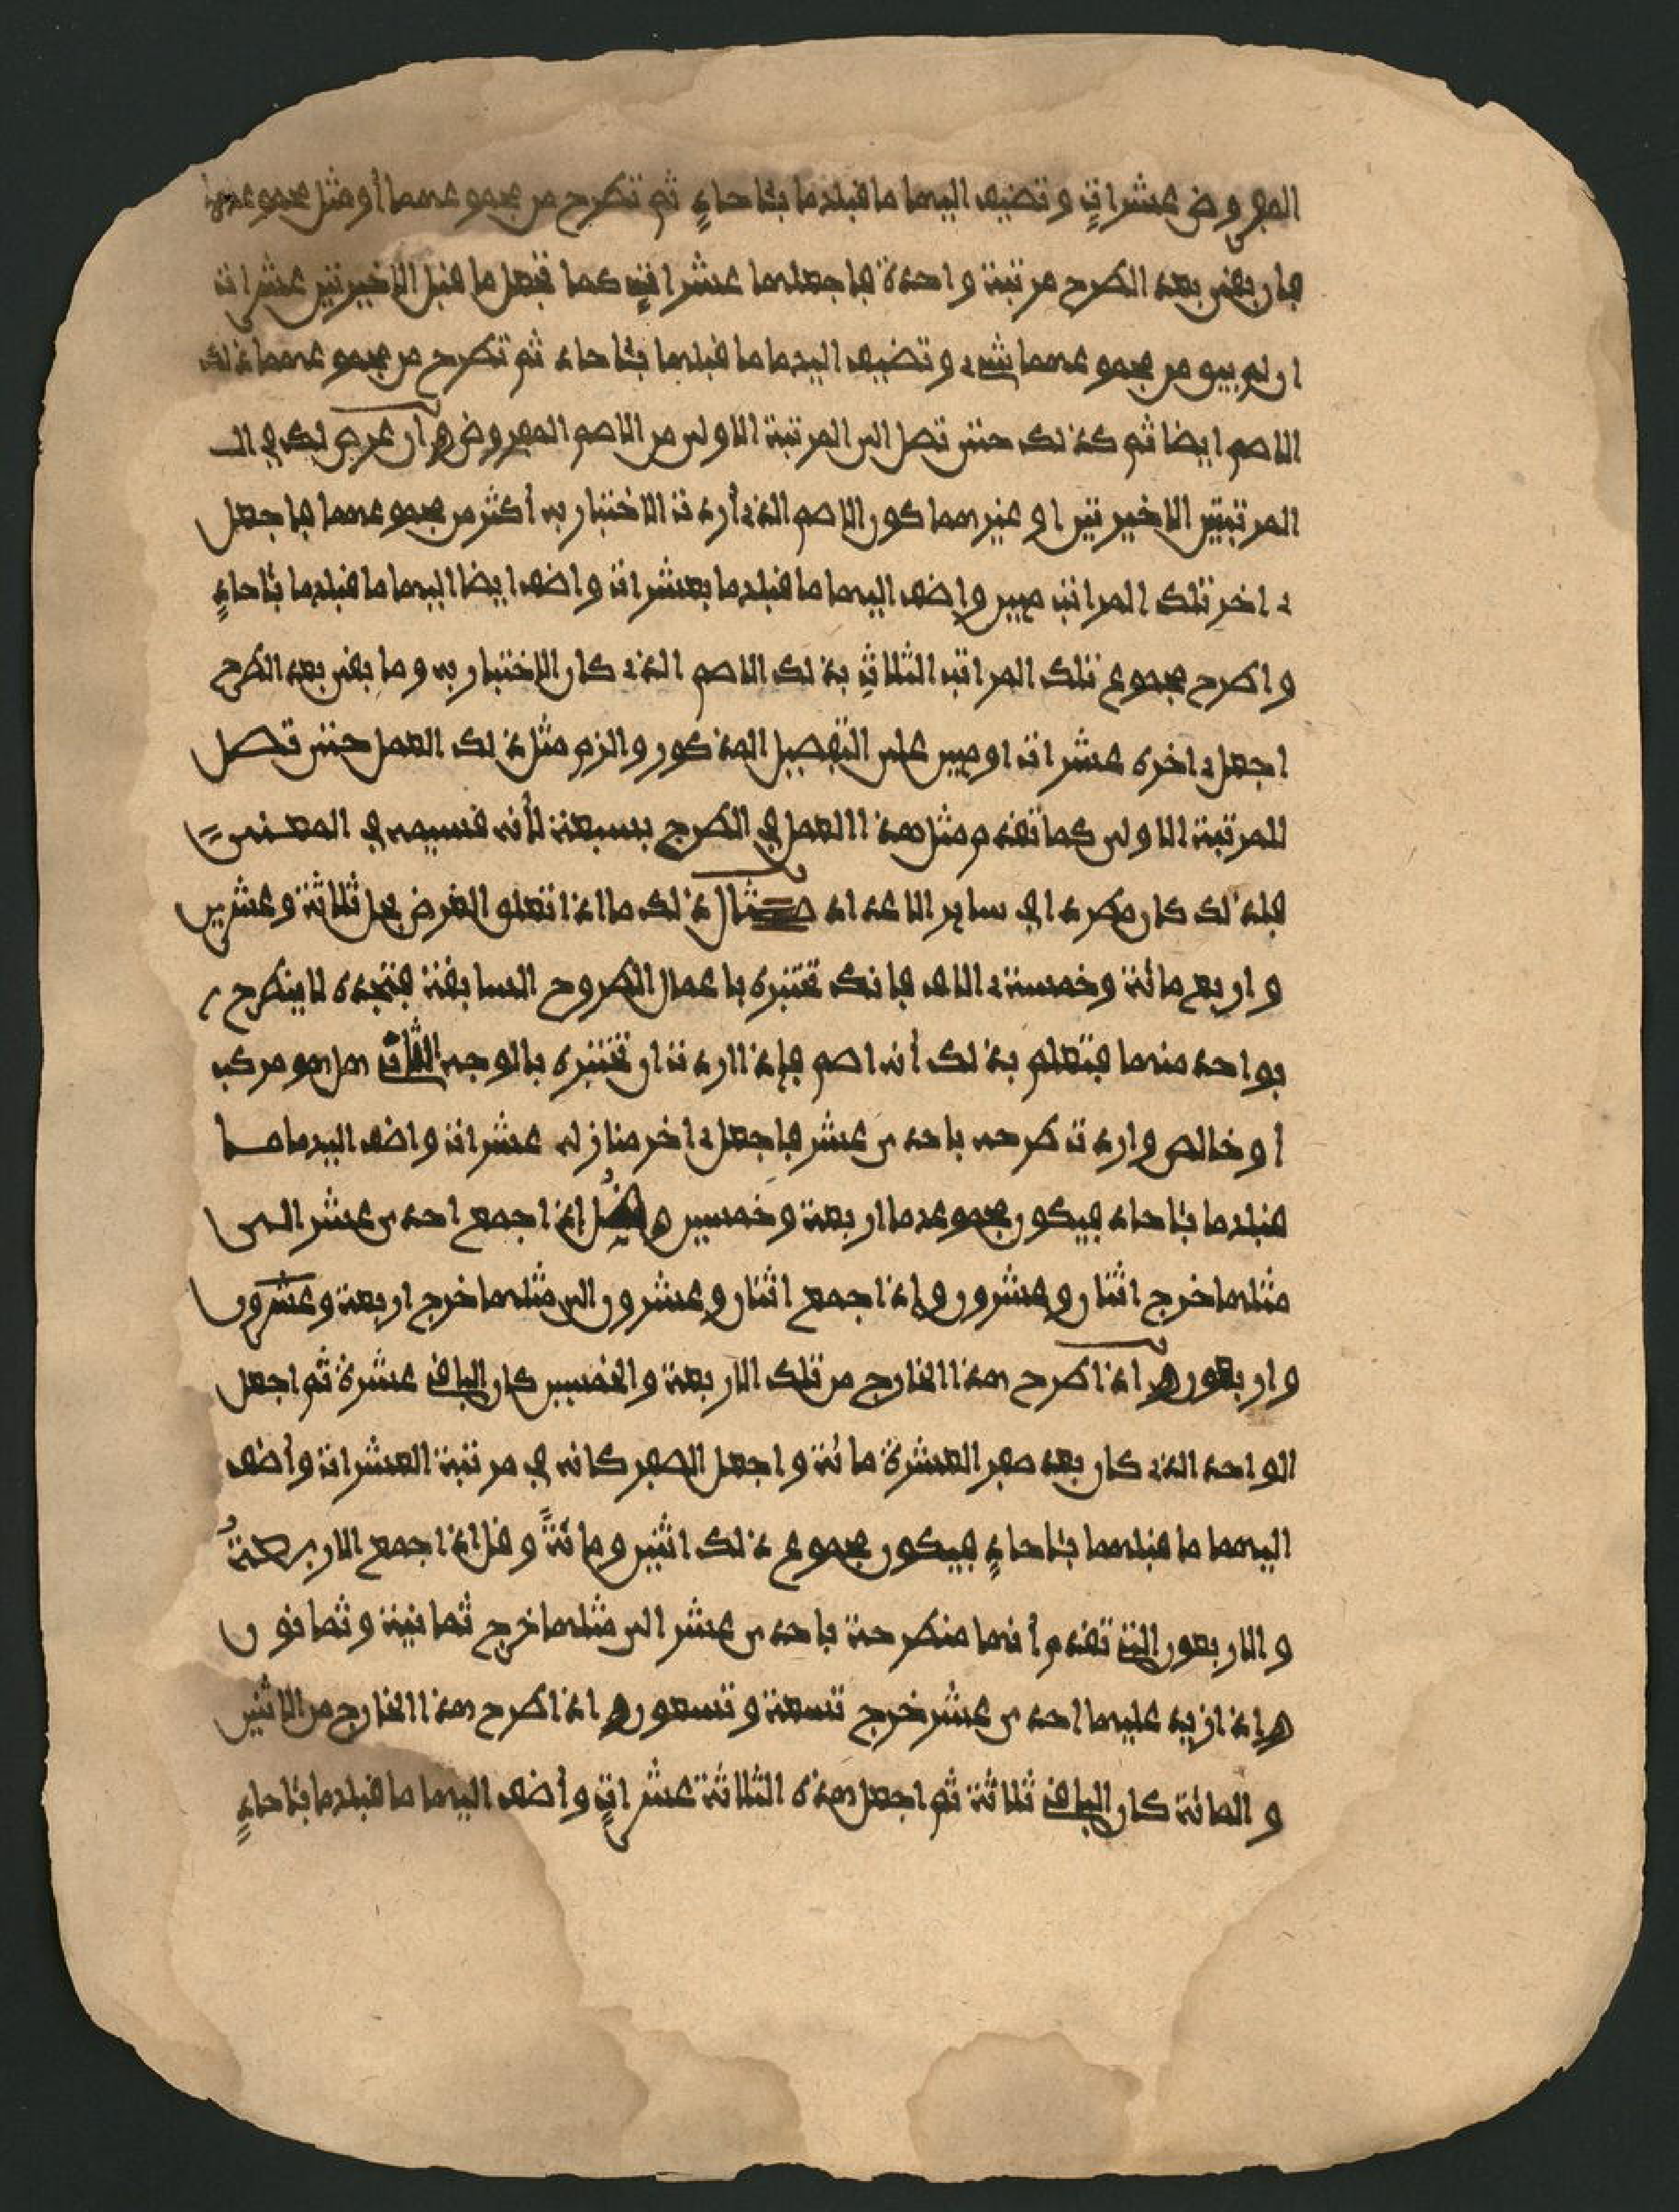 المفروض عشراتٍ وتضيف اليهما ما قبلهما بئاحادٍ ثم تطرح من مجموعهما أو مثل مجموعهما
فإن بقى بعد الطرح مرتبة واحدة فاجعلهما عشراتٍ كما تجعل ما قبل الاخيرتين عشرات
ان لم يبق من مجموعهما شىء وتضيف اليهما ما قبلهما بئاحاد ثم تطرح من مجموعهما ذلك
الاصم ايضا ثم كذلك حتى تصل الى المرتبة الاولى من الاصم المفروض فإن عرض لك في الـ
المرتبتين الاخيرتين او غيرهما كون الاصم الذى أردت الاختبار به أكثر من مجموعهما فاجعل
ءاخر تلك المراتب ميين واضف اليهما ما قبلهما بعشرات واضف ايضا اليهما ما قبلهما بئاحادٍ
واطرح مجموع تلك المراتب الثلاثِ بذلك الاصم الذى كان الاختبار به وما بقى بعد الطرح
اجعل ءاخره عشرات او ميين على التفصيل المذكور والزم مثل ذلك العمل حتى تصل
للمرتبة الاولى كما تقدم ومثل هذا العمل في الطرح بسبعة لأنه قسيمه في المعنى
فلذلك كان مطردا في ساير الاعداد مثال ذلك ما اذا تعلق الغرض بجل ثلاثة وعشرين
واربع مائة وخمسة ءالاف فإنك تختبره باعمال الطروح السابقة فتجده لا ينطرح
بواحد منهما فتعلم بذلك أنه اصم فإذا اردت ان تختبره بالوجه الثانى هل هو مركب
أو خالص واردت طرحه باحدى عشر فاجعل ءاخر منازله عشرات واضف اليهما مـا
قبلهما بئاحاد فيكون مجموعهما اربعة وخمسين وقل إذا جمع احدى عشر الـى
مثلهما خرج اثنان وعشرون وإذا جمع اثنان وعشرون الى مثلهما خرج اربعة وعشرون
واربعون فإذا طرح هذا الخارج من تلك الاربعة والخمسين كان الباقي عشرة ثم اجعل
الواحد الذى كان بعد صفر العشرة مائة واجعل الصفر كانه في مرتبة العشرات وأضف
اليهما ما قبلهما بئاحادٍ فيكون مجموع ذلك اثنين ومائةً وقل إذا جمع الاربـعـةُ
والاربعون التي تقدم أنهما منطرحة باحدى عشر الى مثلهما خرج ثمانية وثمانون
فإذا زيد عليهما احدى عشر خرج تسعة وتسعون فإذا طرح هذا الخارج من الاثنين
والمائة كان الباقي ثلاثة ثم اجعل هذه الثلاثة عشراتٍ وأضف اليهما ما قبلهما بئاحادٍ